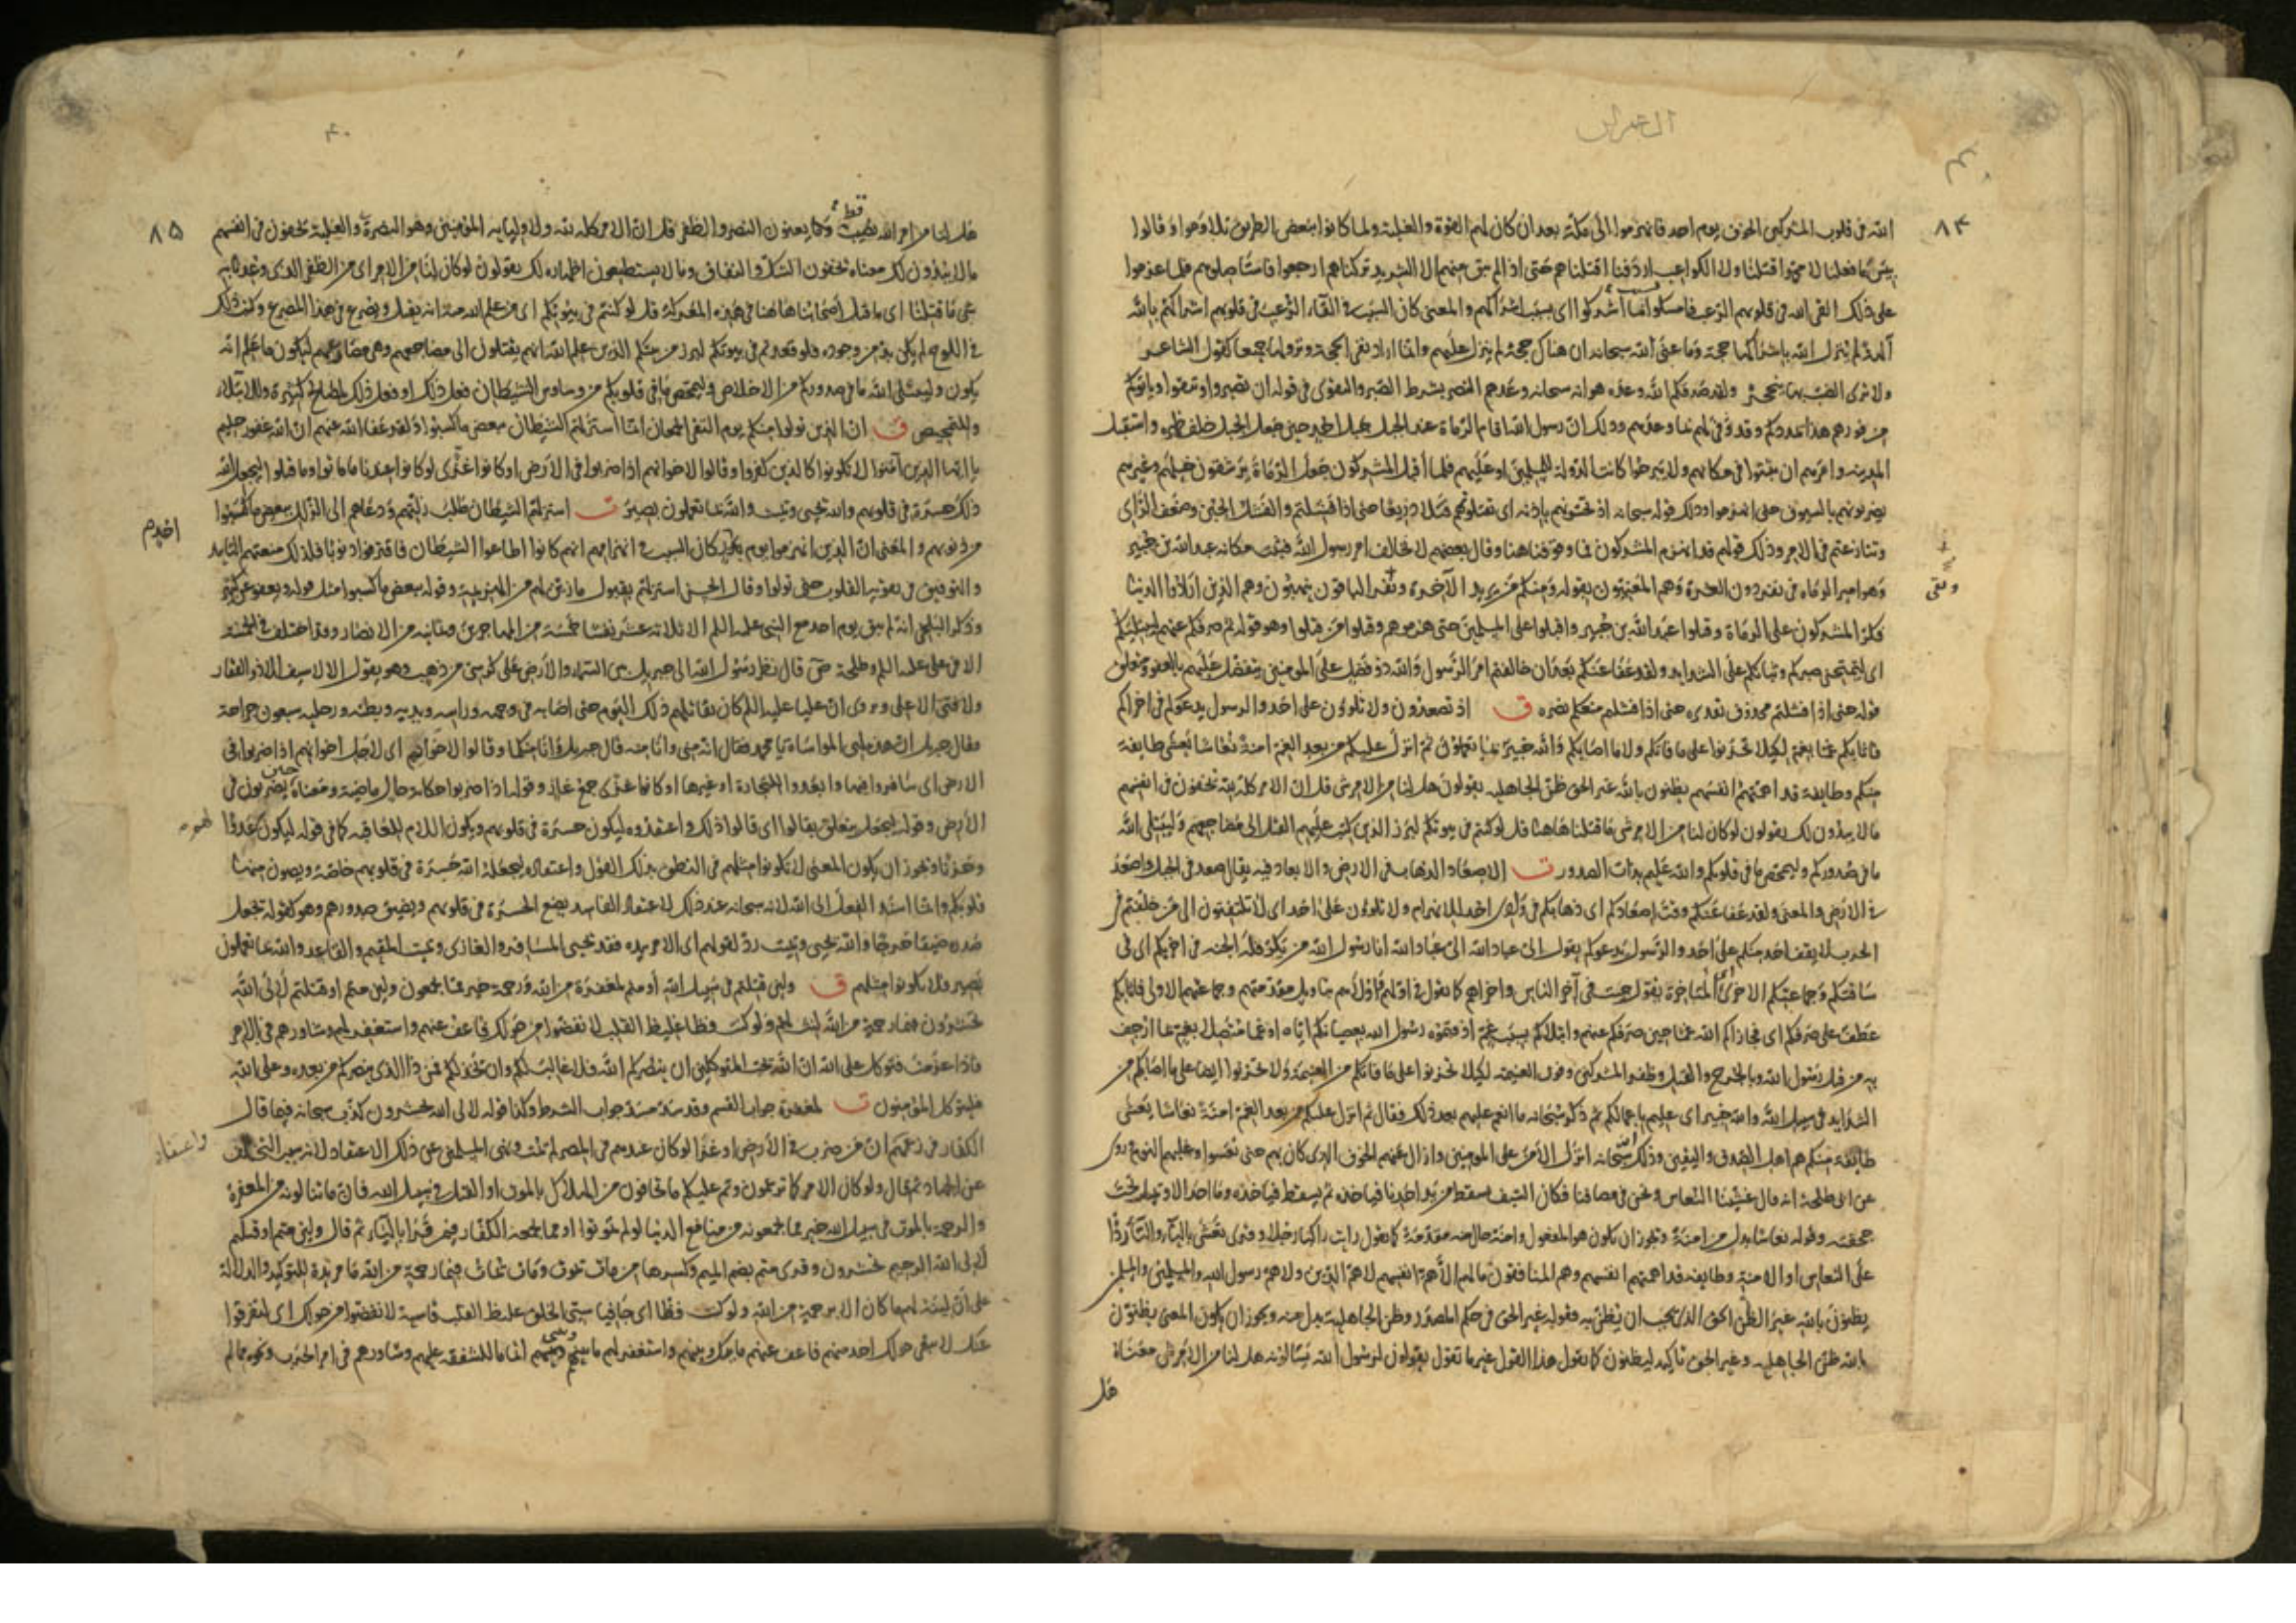 ال عمران
٨٤
الله في قلوب المشركين الخوف يوم احد فانهزموا الى مكة بعد ان كان لهم القوة والغلبة ولما كانوا ببعض الطريق تلاوموا وقالوا
بئس ما فعلنا لا محمدا قتلنا ولا الكواعب اردفنا اقتلناهم حتى اذا لم يبق منهم الا الشريد تركناهم ارجعوا فاستأصلوهم فلما عزموا
على ذلك القى الله في قلوبهم الرعب فامسكوا بما اشركوا اى بسبب اشراكهم والمعنى كان السبب في القاء الرعب في قلوبهم اشراكهم بالله
آلهة لم ينزل الله باشراكها حجة وما عنى الله سبحانه ان هناك حجة لم ينزل عليهم وانما اراد نفى الحجة ونزولها جميعا كقول الشاعر
ولا ترى الضب بها ينجحر ولقد صدقكم الله وعده هو انه سبحانه وعدهم النصر بشرط الصبر والتقوى في قوله ان تصبروا وتتقوا ويأتوكم
من فورهم هذا يمددكم وقد وفى لهم بما وعدهم وذلك ان رسول الله اقام الرماة عند الجبل فجعل احد حين جعل الجبل خلف ظهره واستقبل
المدينه وامرهم ان يثبتوا في مكانهم ولا يبرحوا كانت الدولة للمسلمين او عليهم فلما أقبل المشركون جعل الرماة يرشقون خيلهم وغيرهم
يضربونهم بالسيوف حتى انهزموا وذلك قوله سبحانه اذ تحسونهم باذنه اى تقتلونهم قتلا ذريعا حتى اذا فشلتم والفشل الجبن وضعف الراى
وتنازعتم في الامر وذلك قولهم قد انهزم المشركون فما وقوفنا هنا وقال بعضهم لا نخالف امر رسول الله فثبت مكانه عبدالله بن جبير
وهو امير الرماة في نفر دون العشرة وهم المعنيون بقوله ومنكم من يريد الآخرة ونفر الباقون ينهبون وهم الذين ارادوا الدنيا
وبقى
فكر المشركون على الرماة وقتلوا عبد الله بن جبير واقبلوا على المسلمين حتى هزموهم وقتلوا من قتلوا وهو قوله ثم صرفكم عنهم ليبتليكم
اى ليمتحن صبركم وثباتكم على الشدايد ولقد عفا عنكم بعد ان خالفتم امر الرسول والله ذو فضل على المؤمنين يتفضل عليهم بالعفو ومتعلق
قوله حتى اذا فشلتم محذوف تقديره حتى اذا فشلتم منعكم نصره ق اذ تصعدون ولا تلوون على احد والرسول يدعوكم في اخراكم
فاثابكم غما بغم لكيلا تحزنوا على ما فاتكم ولا ما اصابكم والله خبير بما تعملون ثم انزل عليكم من بعد الغم امنة نعاسا يغشى طايفة
منكم وطايفة قد اهمتهم انفسهم يظنون بالله غير الحق ظن الجاهليه يقولون هل لنا من الامر شى قل ان الامر كله لله يخفون في انفسهم
مالا يبدون لك يقولون لو كان لنا من الامر شى ما قتلنا هاهنا قل لو كنتم في بيوتكم لبرز الذين كتب عليهم القتل الى مضاجعهم وليبتلى الله
ما في صدوركم وليمحص ما في قلوبكم والله عليم بذات الصدور ت الاصعاد الذهاب في الارض والابعاد فيه يقال صعد في الجبل واصعد
في الارض والمعنى ولقد عفا عنكم وقت اصعادكم اى ذهابكم في وادى احد للانهزام ولا تلوون على احد اى لا تلتفتون الى من خلفتم في
الحرب لا يقف احد منكم على احد والرسول يدعوكم يقول الى عباد الله الى عباد الله انا رسول الله من يكر فله الجنه في اخريكم اى في
ساقتكم وجماعتكم الاخرى المتاخرة يقول جئت في آخر الناس واخراهم كما تقول في اولهم واولاهم بتاويل مقدمتهم وجماعتهم الاولى فاثابكم
عطف على صرفكم اى فجازاكم الله غما حين صرفكم عنهم وابتلاكم بسبب غم اذقتموه رسول الله بعصيانكم اياه او غما متصلا بغم مما ارجف
به من قتل رسول الله وبالجرح والقتل وظفر المشركين وفوت الغنيمه لكيلا تحزنوا على ما فاتكم من الغنيمة ولا تحزنوا ايضا على ما اصابكم من
الشدايد في سبيل الله والله خبير اى عليم باعمالكم ثم ذكر سبحانه ما انعم عليهم بعد ذلك فقال ثم انزل عليكم من بعد الغم امنة نعاسا يغشى
طايفة منكم هم اهل الصدق واليقين وذلك انه سبحانه انزل الأمن على المومنين وازال عنهم الخوف الذى كان بهم حتى نعسوا وغلبهم النوم روى
عن ابى طلحة انه قال غشينا النعاس ونحن في مصافنا فكان السيف يسقط من يد احدنا فياخذه ثم يسقط فياخذه وما احد الا ويميل تحت
جحفته وقوله نعاسا بدل من امنة ويجوز ان يكون هو المفعول وامنة حال منه مقدمة كما تقول رايت راكبا رجلا وقرى تغشى بالياء والتاء ردا
على النعاس او الامنة وطايفه قد اهمتهم انفسهم وهم المنافقون ما لهم الا هم انفسهم لا هم الدين ولا هم رسول الله والمسلمين
يظنون بالله غير الظن الحق الذى يجب ان يظن به فقوله غير الحق في حكم المصدر وظن الجاهلية بدل منه ويجوز ان يكون المعنى يظنون
بالله ظن الجاهليه وغير الحق تاكيد ليظنون كما يقول هذا القول غير ما تقول يقولون لرسول الله يسالونه هل لنا من الامر شى معناه
هل
٨٥
هل لنا من امر الله نصيب قط وكما يعنون النصر والظفر قل ان الامر كله لله ولاوليايه المؤمنين وهو النصرة والغلبة يخفون في انفسهم
مالا يبدون لك معناه يخفون الشك والنفاق وما لا يستطيعون اظهاره لك يقولون لو كان لنا من الامر اى من الظفر الذى وعدنا به
شى ما قتلنا اى ما قتل اصحابنا هاهنا في هذه المعركة قل لو كنتم في بيوتكم اى من علم الله منه انه يقتل ويصرع في هذا المصرع وكتب ذلك
في اللوح لم يكن بد من وجوده فلو قعدتم في بيوتكم لبرز من بينكم الذين علم الله انهم يقتلون الى مضاجعهم وهى مصارعهم ليكون ما علم انه
يكون وليبتلى الله ما في صدوركم من الاخلاص وليمحص ما في قلوبكم من وساوس الشيطان فعل ذلك او فعل ذلك لمصالح كثيرة وللابتلاء
والتمحيص ق ان الذين تولوا منكم يوم التقى الجمعان انما استزلهم الشيطان ببعض ما كسبوا ولقد عفا الله عنهم ان الله غفور حليم
يا ايها الذين آمنوا لا تكونوا كالذين كفروا وقالوا لاخوانهم اذا ضربوا في الارض او كانوا غزى لو كانوا عندنا ما ماتوا وما قتلوا ليجعل الله
ذلك حسرة في قلوبهم والله يحيى ويميت والله بما تعملون بصير ت استزلهم الشيطان طلب زلتهم ودعاهم الى الزلل ببعض ما كسبوا
من ذنوبهم والمعنى ان الذين انهزموا يوم احد كان السبب في انهزامهم انهم كانوا اطاعوا الشيطان فاقترفوا ذنوبا فلذلك منعتهم التاييد
والتوفيق في تقوية القلوب حتى تولوا وقال الحسن استزلهم بقبول ما زين لهم من الهزيمة وقوله ببعض ما كسبوا مثل قوله ويعفو عن كثير
وذكر البلخى انه لم يبق يوم احد مع النبى عليه السلم الا ثلاثه عشر نفسا خمسة من المهاجرين وثمانيه من الانصار وقد اختلف في الخمسة
الا في على عليه السلم وطلحة حتى قال نظر رسول الله الى جبريل بين السماء والأرض على كرسى من ذهب وهو يقول الا لا سيف الا ذو الفقار
ولا فتى الا على وروى ان عليا عليه السلم كان يقاتلهم ذلك اليوم حتى اصابه في وجهه وراسه ويديه وبطنه ورجليه سبعون جراحة
وقال جبريل ان هذه لهى المواساة يا محمد فقال انه منى وانا منه قال جبريل وانا منكما وقالوا لاخوانهم اى لاجل اخوانهم اذا ضربوا في
الارض اى سافروا فيها وابعدوا للتجارة او غيرها او كانوا غزى جمع غاز وقوله اذا ضربوا حكاية حال ماضية ومعناه حين يضربون في
الأرض وقوله ليجعل يتعلق بقالوا اى قالوا ذلك واعتقدوه ليكون حسرة في قلوبهم ويكون اللام للعاقبة كما في قوله ليكون لهم عدوا
وحزنا ويجوز ان يكون المعنى لا تكونوا مثلهم في النطق بذلك القول واعتقاده ليجعله الله حسرة في قلوبهم خاصة ويصون منها
قلوبكم وانما اسند الفعل الى الله لانه سبحانه عند ذلك الاعتقاد الفاسد يضع الحسرة في قلوبهم ويضيق صدورهم وهو كقوله تجعل
صدره ضيقا حرجا والله يحيى ويميت رد لقولهم اى الامر بيده فقد يحيى المسافر والغازى ويميت المقيم والقاعد والله بما تعملون
بصير ولا تكونوا مثلهم ق ولئن قتلتم في سبيل الله او متم لمغفرة من الله ورحمة خير مما يجمعون ولئن متم او قتلتم لالى الله
تحشرون فبما رحمة من الله لنت لهم ولو كنت فظا غليظ القلب لانفضوا من حولك فاعف عنهم واستغفر لهم وشاورهم في الامر
فاذا عزمت فتوكل على الله ان الله يحب المتوكلين ان ينصركم الله فلا غالب لكم وان يخذلكم فمن ذا الذى ينصركم من بعده وعلى الله
فليتوكل المؤمنون ت لمغفرة جواب القسم وقد سد مسد جواب الشرط وكذا قوله لالى الله تحشرون كذب سبحانه فيما قال
الكفار في زعمهم ان من ضرب في الارض او غزا لو كان عندهم في المصر لم يمت ونهى المسلمين عن ذلك الاعتقاد لانه سبب التخلف
عن الجهاد ثم قال ولو كان الامر كما تزعمون وتم عليكم ما تخافون من الهلاك بالموت او القتل في سبيل الله فان ما تنالونه من المغفرة
والرحمة بالموت في سبيل الله خير مما يجمعونه من منافع الدنيا لو لم تموتوا او مما يجمعه الكفار فيمن قرأ بالياء ثم قال ولئن متم او قتلتم
لالى الله الرحيم تحشرون وقرى متم بضم الميم وكسرها من مات يموت ومات يمات فبما رحمة من الله ما مزيدة للتوكيد والدلالة
على ان لينه لهم ما كان الا برحمة من الله ولو كنت فظا اى جافيا سيئ الخلق غليظ القلب قاسية لانفضوا من حولك اى لتفرقوا
عنك لا يبقى حولك احد منهم فاعف عنهم ما بينك وبينهم واستغفر لهم ما بينهم وبينى اتماما للشفقة عليهم وشاورهم في امر الحرب ونحوه مما لم